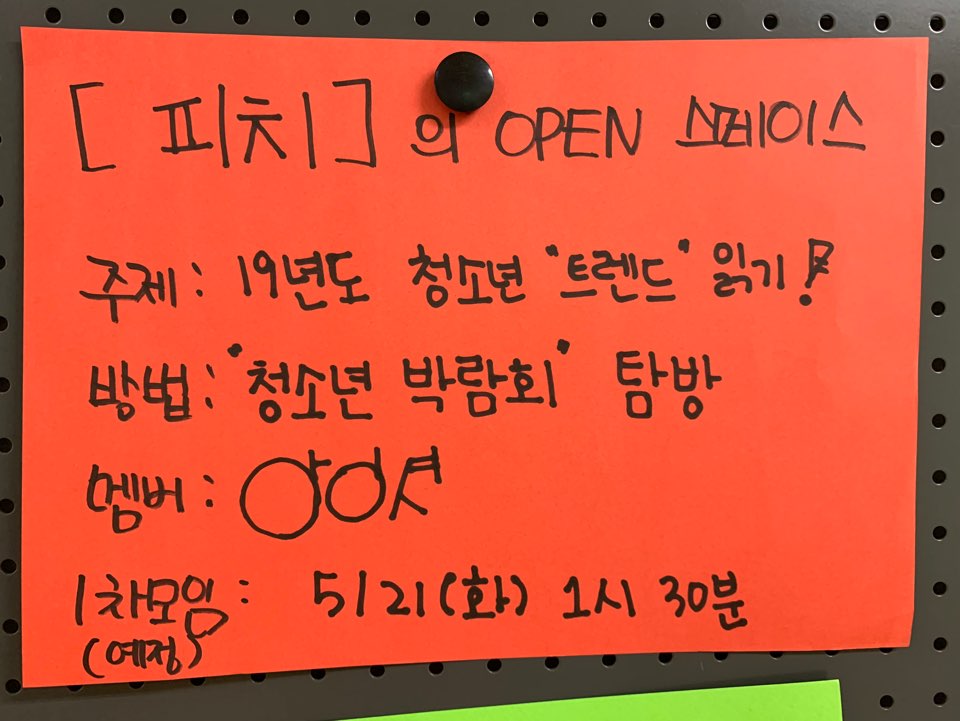 [ 피치 ] 의 OPEN 스페이스
주제 : 19년도 청소년 "트렌드" 읽기!
방법 : "청소년 박람회" 탐방
멤버 :
1차모임 : 5/21(화) 1시 30분
(예정)